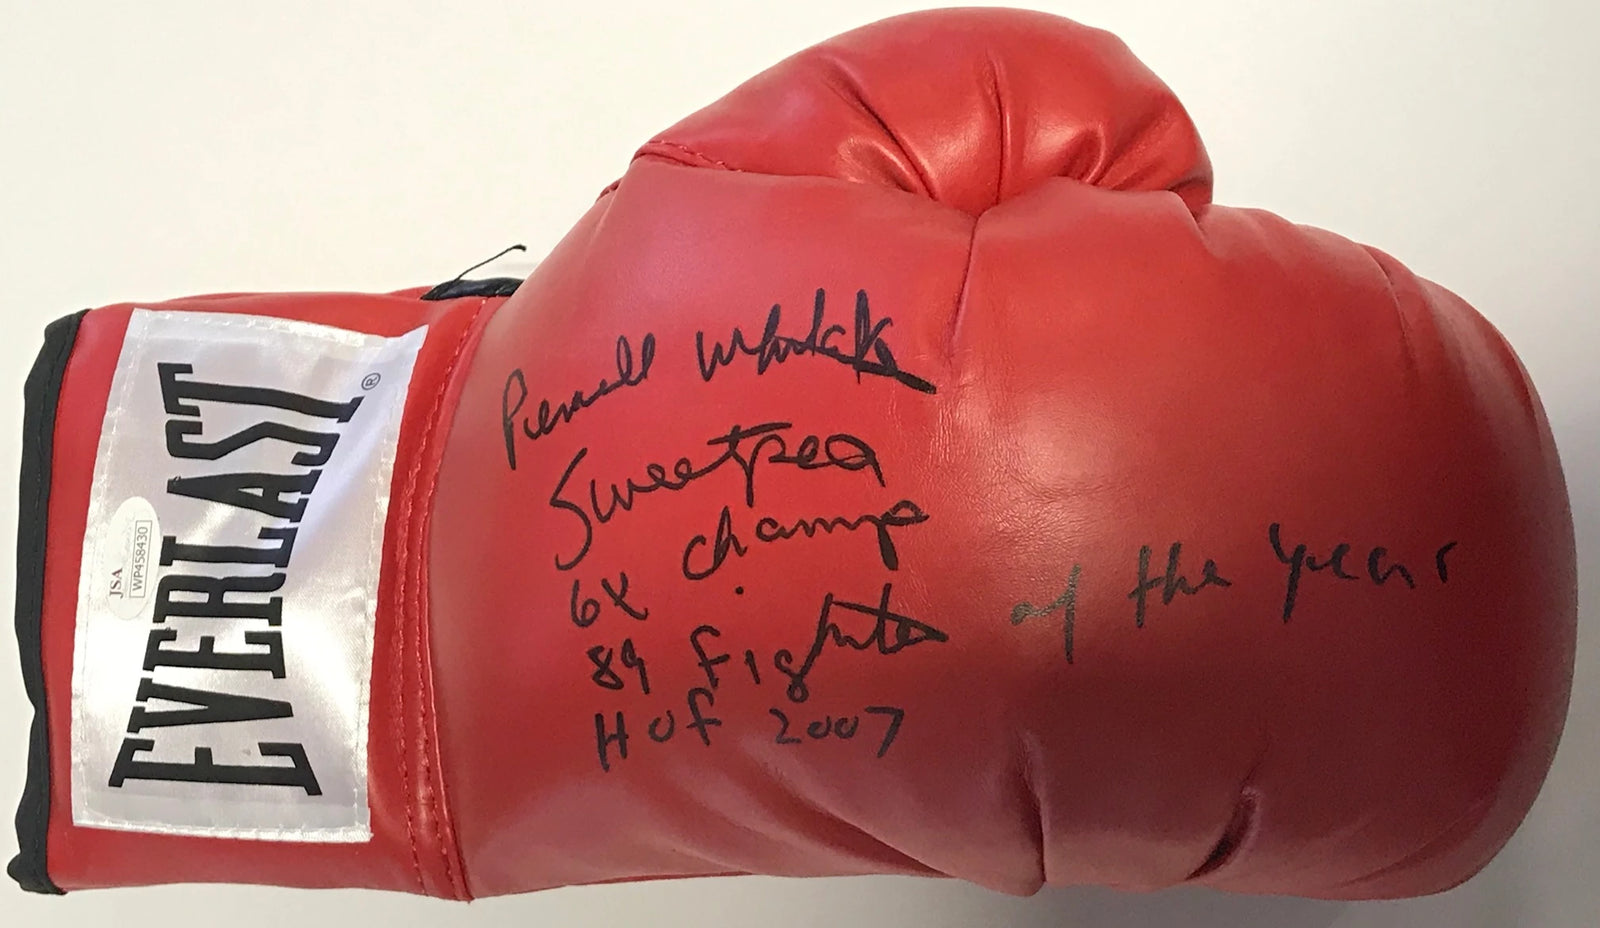 EVERLAST®
JSA
WP458430
Pernell Whitaker
Sweetpea
6x Champ
89 Fighter of the Year
HOF 2007